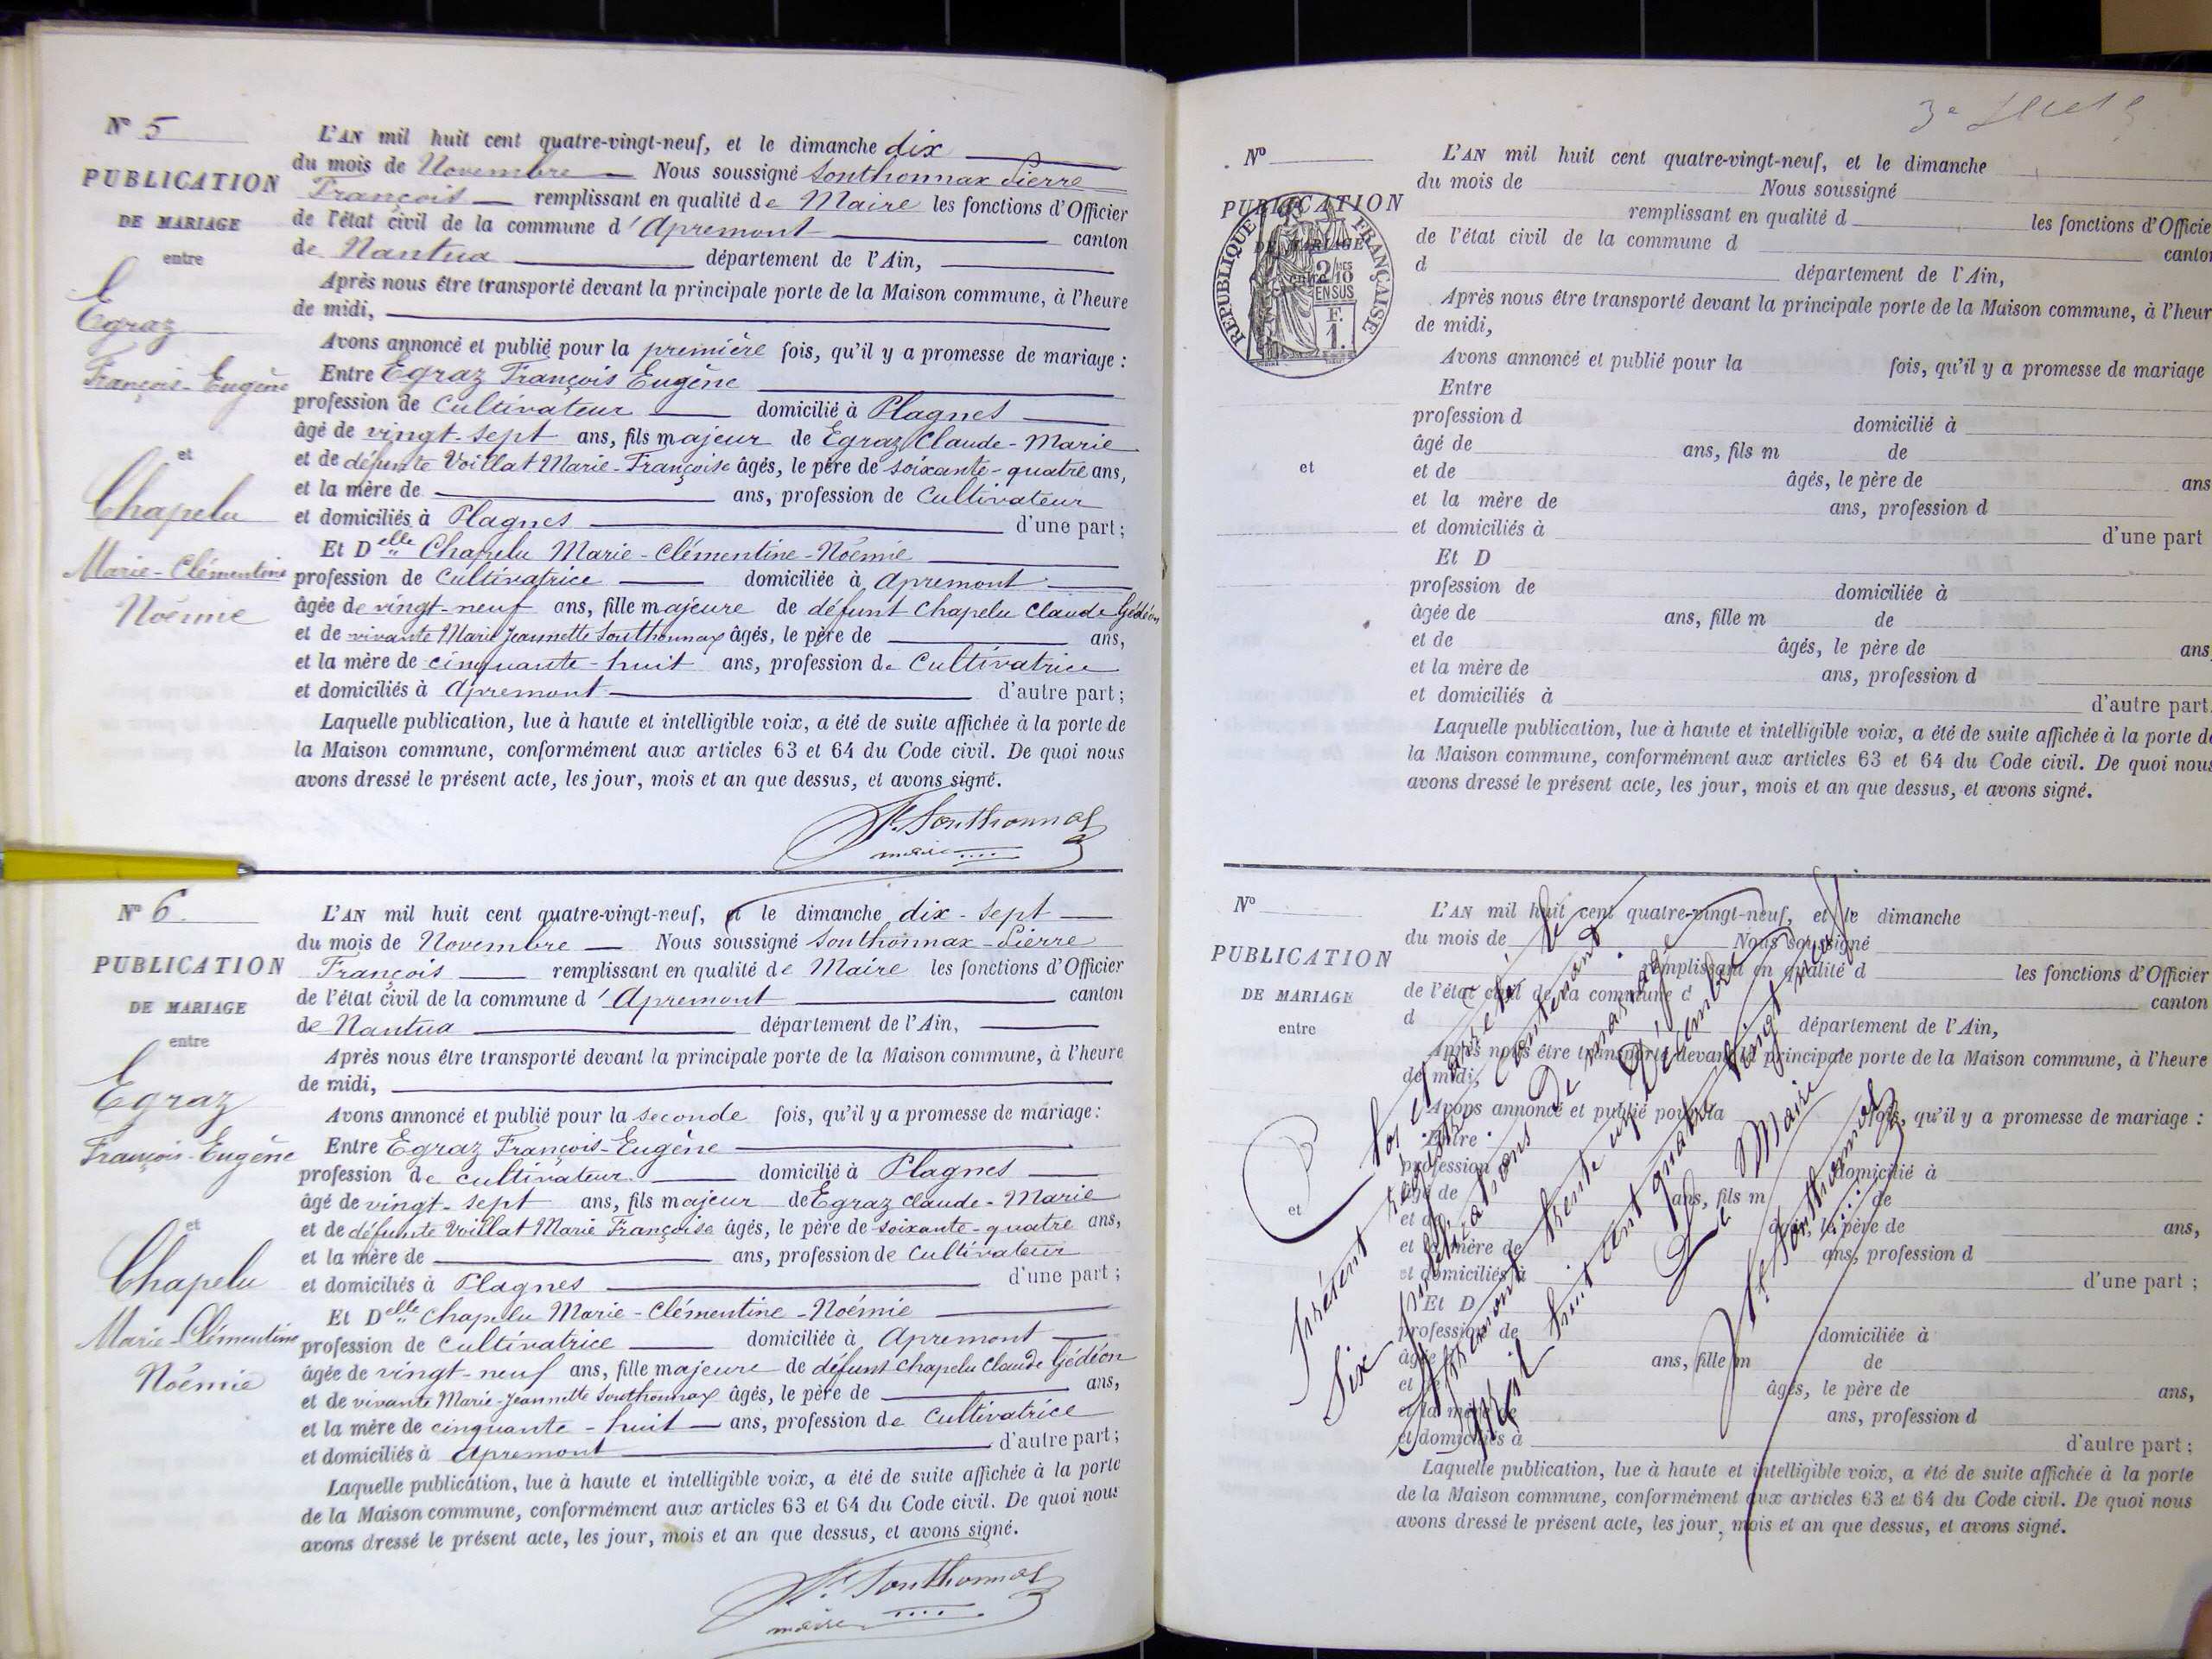 N° 5
PUBLICATION
DE MARIAGE
entre
Egraz
François-Eugène
et
Chapelu
Marie-Clémentine
Noémie
L'AN mil huit cent quatre-vingt-neuf, et le dimanche dix
du mois de Novembre Nous soussigné Southonnax Pierre
François remplissant en qualité de Maire les fonctions d'Officier
de l'état civil de la commune d'Apremont canton
de Nantua département de l'Ain,
Après nous être transporté devant la principale porte de la Maison commune, à l'heure
de midi,
Avons annoncé et publié pour la première fois, qu'il y a promesse de mariage :
Entre Egraz François Eugène
profession de Cultivateur domicilié à Plagnes
âgé de vingt-sept ans, fils majeur de Egraz Claude-Marie
et de défunte Voillat Marie-Françoise âgés, le père de soixante-quatre ans,
et la mère de ans, profession de Cultivateur
et domiciliés à Plagnes d'une part ;
Et Delle Chapelu Marie-Clémentine-Noémie
profession de Cultivatrice domiciliée à Apremont
âgée de vingt-neuf ans, fille majeure de défunt Chapelu Claude Gédéon
et de vivante Marie Jeannette Southonnax âgés, le père de ans,
et la mère de cinquante-huit ans, profession de Cultivatrice
et domiciliés à Apremont d'autre part ;
Laquelle publication, lue à haute et intelligible voix, a été de suite affichée à la porte de
la Maison commune, conformément aux articles 63 et 64 du Code civil. De quoi nous
avons dressé le présent acte, les jour, mois et an que dessus, et avons signé.
Southonnax
maire
N° 6
PUBLICATION
DE MARIAGE
entre
Egraz
François-Eugène
et
Chapelu
Marie-Clémentine
Noémie
L'AN mil huit cent quatre-vingt-neuf, et le dimanche dix-sept
du mois de Novembre Nous soussigné Southonnax-Pierre
François remplissant en qualité de Maire les fonctions d'Officier
de l'état civil de la commune d'Apremont canton
de Nantua département de l'Ain,
Après nous être transporté devant la principale porte de la Maison commune, à l'heure
de midi,
Avons annoncé et publié pour la seconde fois, qu'il y a promesse de mariage :
Entre Egraz François-Eugène
profession de cultivateur domicilié à Plagnes
âgé de vingt-sept ans, fils majeur de Egraz Claude-Marie
et de défunte Voillat Marie Françoise âgés, le père de soixante-quatre ans,
et la mère de ans, profession de Cultivateur
et domiciliés à Plagnes d'une part ;
Et Delle Chapelu Marie-Clémentine-Noémie
profession de Cultivatrice domiciliée à Apremont
âgée de vingt-neuf ans, fille majeure de défunt Chapelu Claude Gédéon
et de vivante Marie-Jeannette Southonnax âgés, le père de ans,
et la mère de cinquante-huit ans, profession de Cultivatrice
et domiciliés à Apremont d'autre part ;
Laquelle publication, lue à haute et intelligible voix, a été de suite affichée à la porte
de la Maison commune, conformément aux articles 63 et 64 du Code civil. De quoi nous
avons dressé le présent acte, les jour, mois et an que dessus, et avons signé.
Southonnax
maire
N°
PUBLICATION
DE MARIAGE
entre
RÉPUBLIQUE FRANÇAISE
2/10MES
EN SUS
F.
1.
et
L'AN mil huit cent quatre-vingt-neuf, et le dimanche
du mois de Nous soussigné
remplissant en qualité d les fonctions d'Officie
de l'état civil de la commune d canton
d département de l'Ain,
Après nous être transporté devant la principale porte de la Maison commune, à l'heur
de midi,
Avons annoncé et publié pour la fois, qu'il y a promesse de mariage
Entre
profession d domicilié à
âgé de ans, fils m de
et de âgés, le père de ans
et la mère de ans, profession d
et domiciliés à d'une part
Et D
profession de domiciliée à
âgée de ans, fille m de
et de âgés, le père de ans
et la mère de ans, profession d
et domiciliés à d'autre part.
Laquelle publication, lue à haute et intelligible voix, a été de suite affichée à la porte de
la Maison commune, conformément aux articles 63 et 64 du Code civil. De quoi nous
avons dressé le présent acte, les jour, mois et an que dessus, et avons signé.
N°
PUBLICATION
DE MARIAGE
entre
et
L'AN mil huit cent quatre-vingt-neuf, et le dimanche
du mois de Nous soussigné
remplissant en qualité d les fonctions d'Officier
de l'état civil de la commune d canton
d département de l'Ain,
Après nous être transporté devant la principale porte de la Maison commune, à l'heure
de midi,
Avons annoncé et publié pour la fois, qu'il y a promesse de mariage :
Entre
profession domicilié à
âgé de ans, fils m de
et de âgés, le père de ans,
et la mère de ans, profession d
et domiciliés à d'une part ;
Et D
profession de domiciliée à
âgée ans, fille m de
et de âgés, le père de ans,
et la mère de ans, profession d
et domiciliés à d'autre part ;
Laquelle publication, lue à haute et intelligible voix, a été de suite affichée à la porte
de la Maison commune, conformément aux articles 63 et 64 du Code civil. De quoi nous
avons dressé le présent acte, les jour, mois et an que dessus, et avons signé.
Clos et arrêté le
présent registre contenant
six publications de mariage
Apremont trente un Décembre
Mil huit cent quatre vingt neuf
Le Maire
Southonnax